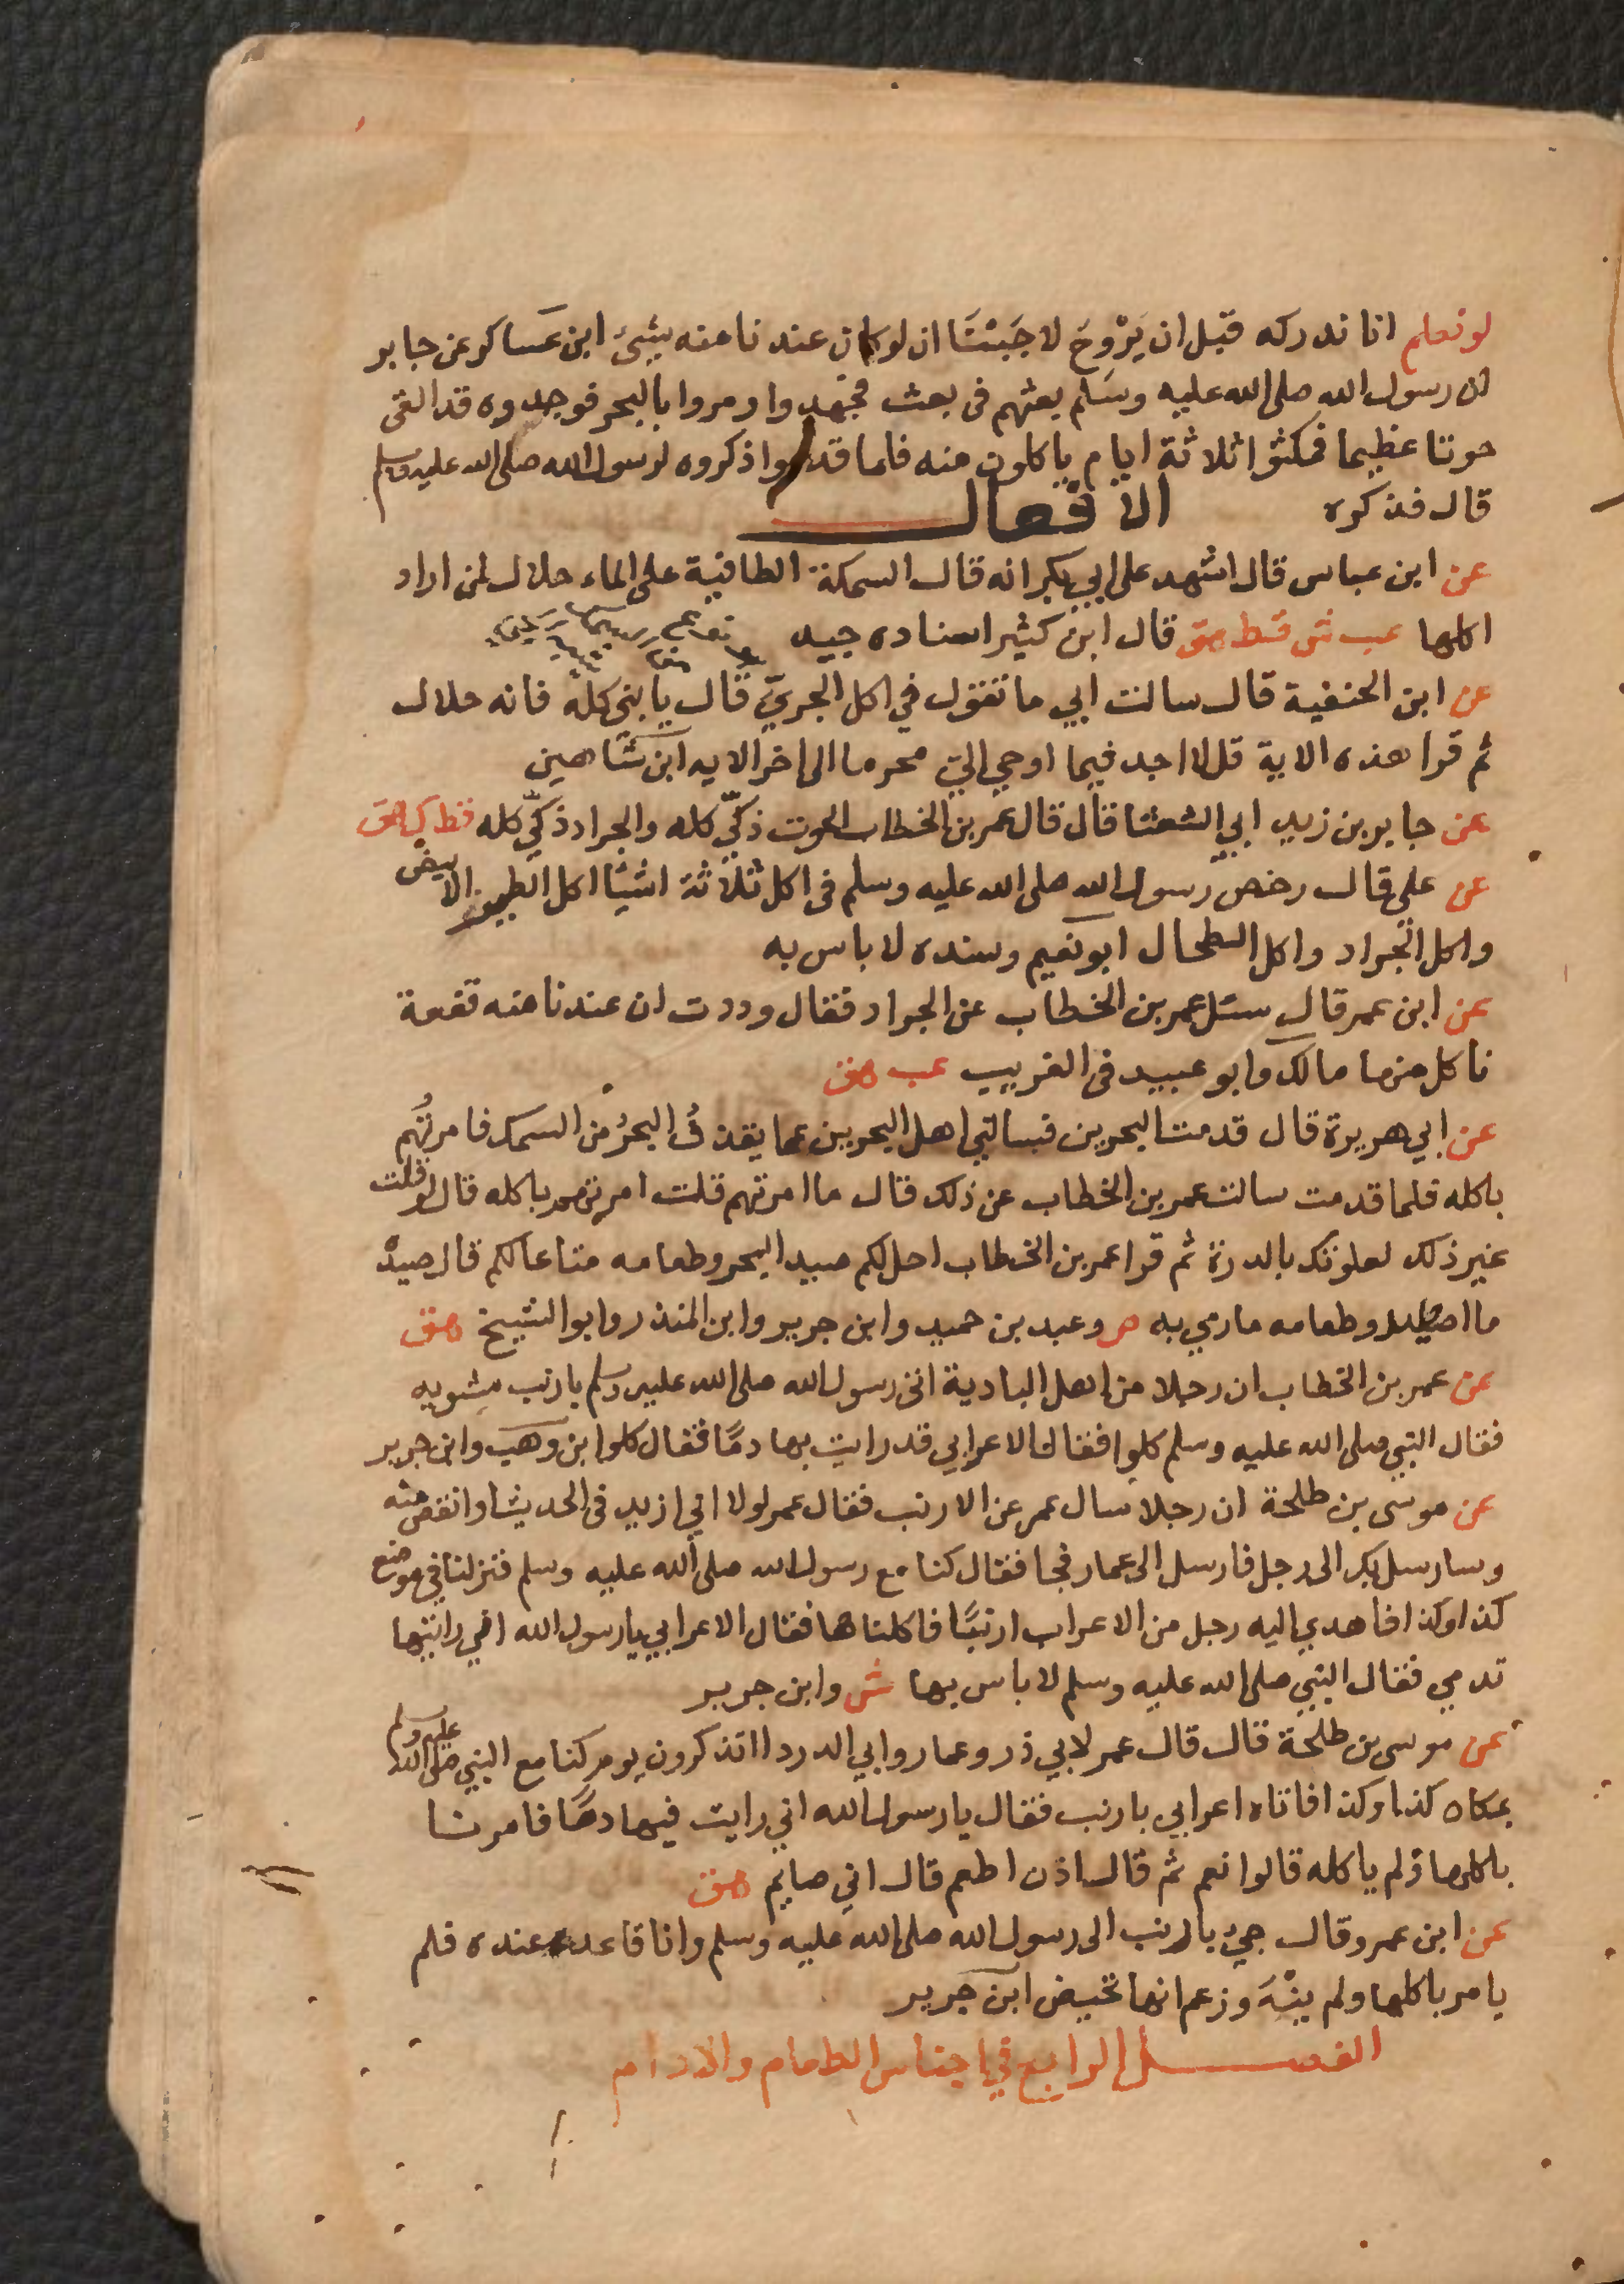 لو نعلم انا ندركه قبل ان يَرْوِحَ لاحَبَبْنَا ان لو كان عندنا منه بشئ ابن عساكر عن جابر
ان رسول الله صلى الله عليه وسَلم بعثهم فى بعث فجهدوا ومروا بالبحر فوجدوه قد القى
حوتا عظيما فمكثوا ثلاثة ايام ياكلون منه فلما قدموا ذكروه لرسول الله صلى الله عليه وسلم
قال فذكره الافعال
عن ابن عباس قال اشهد على ابي بكر انه قال السمكة الطافية على الماء حلال لمن اراد
اكلها عب ش قط هق قال ابن كثير اسناده جيد
عن ابن الحنفية قال سالت ابي ما تقول في اكل الجريّ قال يا بني كله فانه حلال
ثم قرا هذه الاية قل لا اجد فيما اوحي اليّ محرما الى اخر الايه ابن شاهين
عن جابر بن زيد ابي الشعثا قال قال عمر بن الخطاب الحوت ذكيّ كله والجراد ذكيّ كله قط ك هق
عن على قال رخص رسول الله صلى الله عليه وسلم فى اكل ثلاثة اشيا اكل الطير الابيض
واكل الجراد واكل الطحال ابو نعيم وسنده لا باس به
عن ابن عمر قال سئل عمر بن الخطاب عن الجراد فقال وددت ان عندنا منه قفعة
ناكل منها مالك وابو عبيد فى الغريب عب هق
عن ابي هريرة قال قدمت البحرين فسالني اهل البحرين عما يقذفُ البحرُ من السمك فامرتُهم
باكله فلما قدمت سالت عمر بن الخطاب عن ذلك قال ما امرتهم قلت امرتهم باكله قال لو قلت
غير ذلك لعلوتك بالدرة ثم قرا عمر بن الخطاب احل لكم صيد البحر وطعامه متاعا لكم قال صيدهْ
ما اصطيد وطعامه ما رمي به ص وعبد بن حميد وابن جرير وابن المنذر وابو الشيخ هق
عن عمر بن الخطاب ان رجلا من اهل البادية اتى رسول الله صلى الله عليه وسلم بارنب مشويه
فقال النبي صلى الله عليه وسلم كلوا فقال الاعرابي قد رايت بها دمًا فقال كلوا ابن وهب وابن جرير
عن موسى بن طلحة ان رجلا سال عمر عن الارنب فقال عمر لولا اني ازيد فى الحديث او انقص منه
وسارسل لك الى رجل فارسل الى عمار فجا فقال كنا مع رسول الله صلى الله عليه وسلم فنزلنا في موضع
كذا وكذا فاهدي اليه رجل من الاعراب ارنبًا فاكلناها فقال الاعرابي يا رسول الله اني رايتها
تدمي فقال النبي صلى الله عليه وسلم لا باس بها ش وابن جرير
عن موسى بن طلحة قال قال عمر لابي ذر وعمار وابي الدردا اتذكرون يوم كنا مع النبي صلى الله عليه وسلم
بمكان كذا وكذا فاتاه اعرابي بارنب فقال يا رسول الله اني رايت فيها دمًا فامرنا
باكلها ولم ياكله قالوا نعم ثم قال اذن اطعم قال اني صايم هق
عن ابن عمرو قال جيْ بالارنب الى رسول الله صلى الله عليه وسلم وانا قاعد عنده فلم
يامر باكلها ولم ينْهَ وزعم انها تحيض ابن جرير
الفصل الرابع في اجناس الطعام والادام